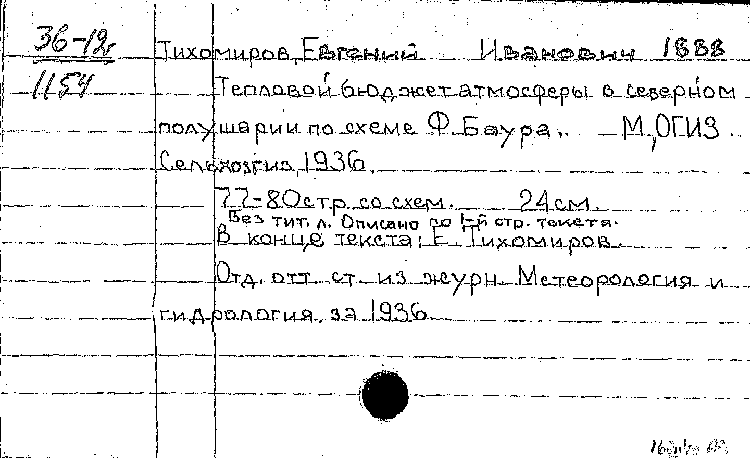 36-12г
1154
Тихомиров, Евгений Иванович 1888
Тепловой бюджет атмосферы в северном
полушарии по схеме Ф. Баура. М., ОГИЗ.
Сельхозгиз, 1936.
77-80 стр. со схем. 24 см.
Без тит. л. Описано по 1-й стр. текста.
В конце текста: Е. Тихомиров.
Отд. отт. ст. из журн. Метеорология и
гидрология за 1936